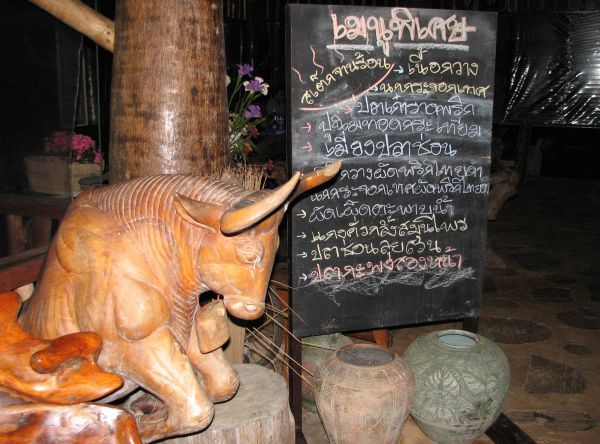 เมนูพิเศษ
สเต็กจานร้อน → เนื้อกวาง
→ นกกระจอกเทศ
→ ปลาเต้าราดพริก
→ ทอดกระเทียม
→ เมี่ยงปลาช่อน
กวางผัดพริกไทยดำ
นกกระจอกเทศผัดพริกไทยดำ
→ ผัดเผ็ดตะพาบน้ำ
→ แกงคั่วสมุนไพร
→ ปลาช่อนลุยสวน
→ ปลากะพงสองหน้า